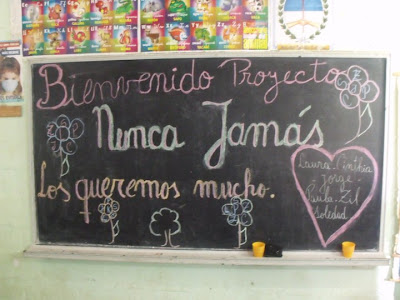 Bienvenido Proyecto
Nunca Jamás
Los queremos mucho.
Laura-Cinthia
Jorge-
Paula-Zil
Soledad